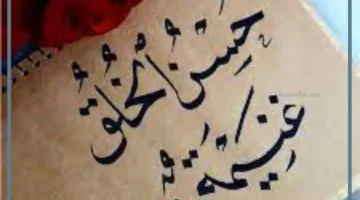 حُسْنُ الخُلُقِ
غَنِيمَةٌ